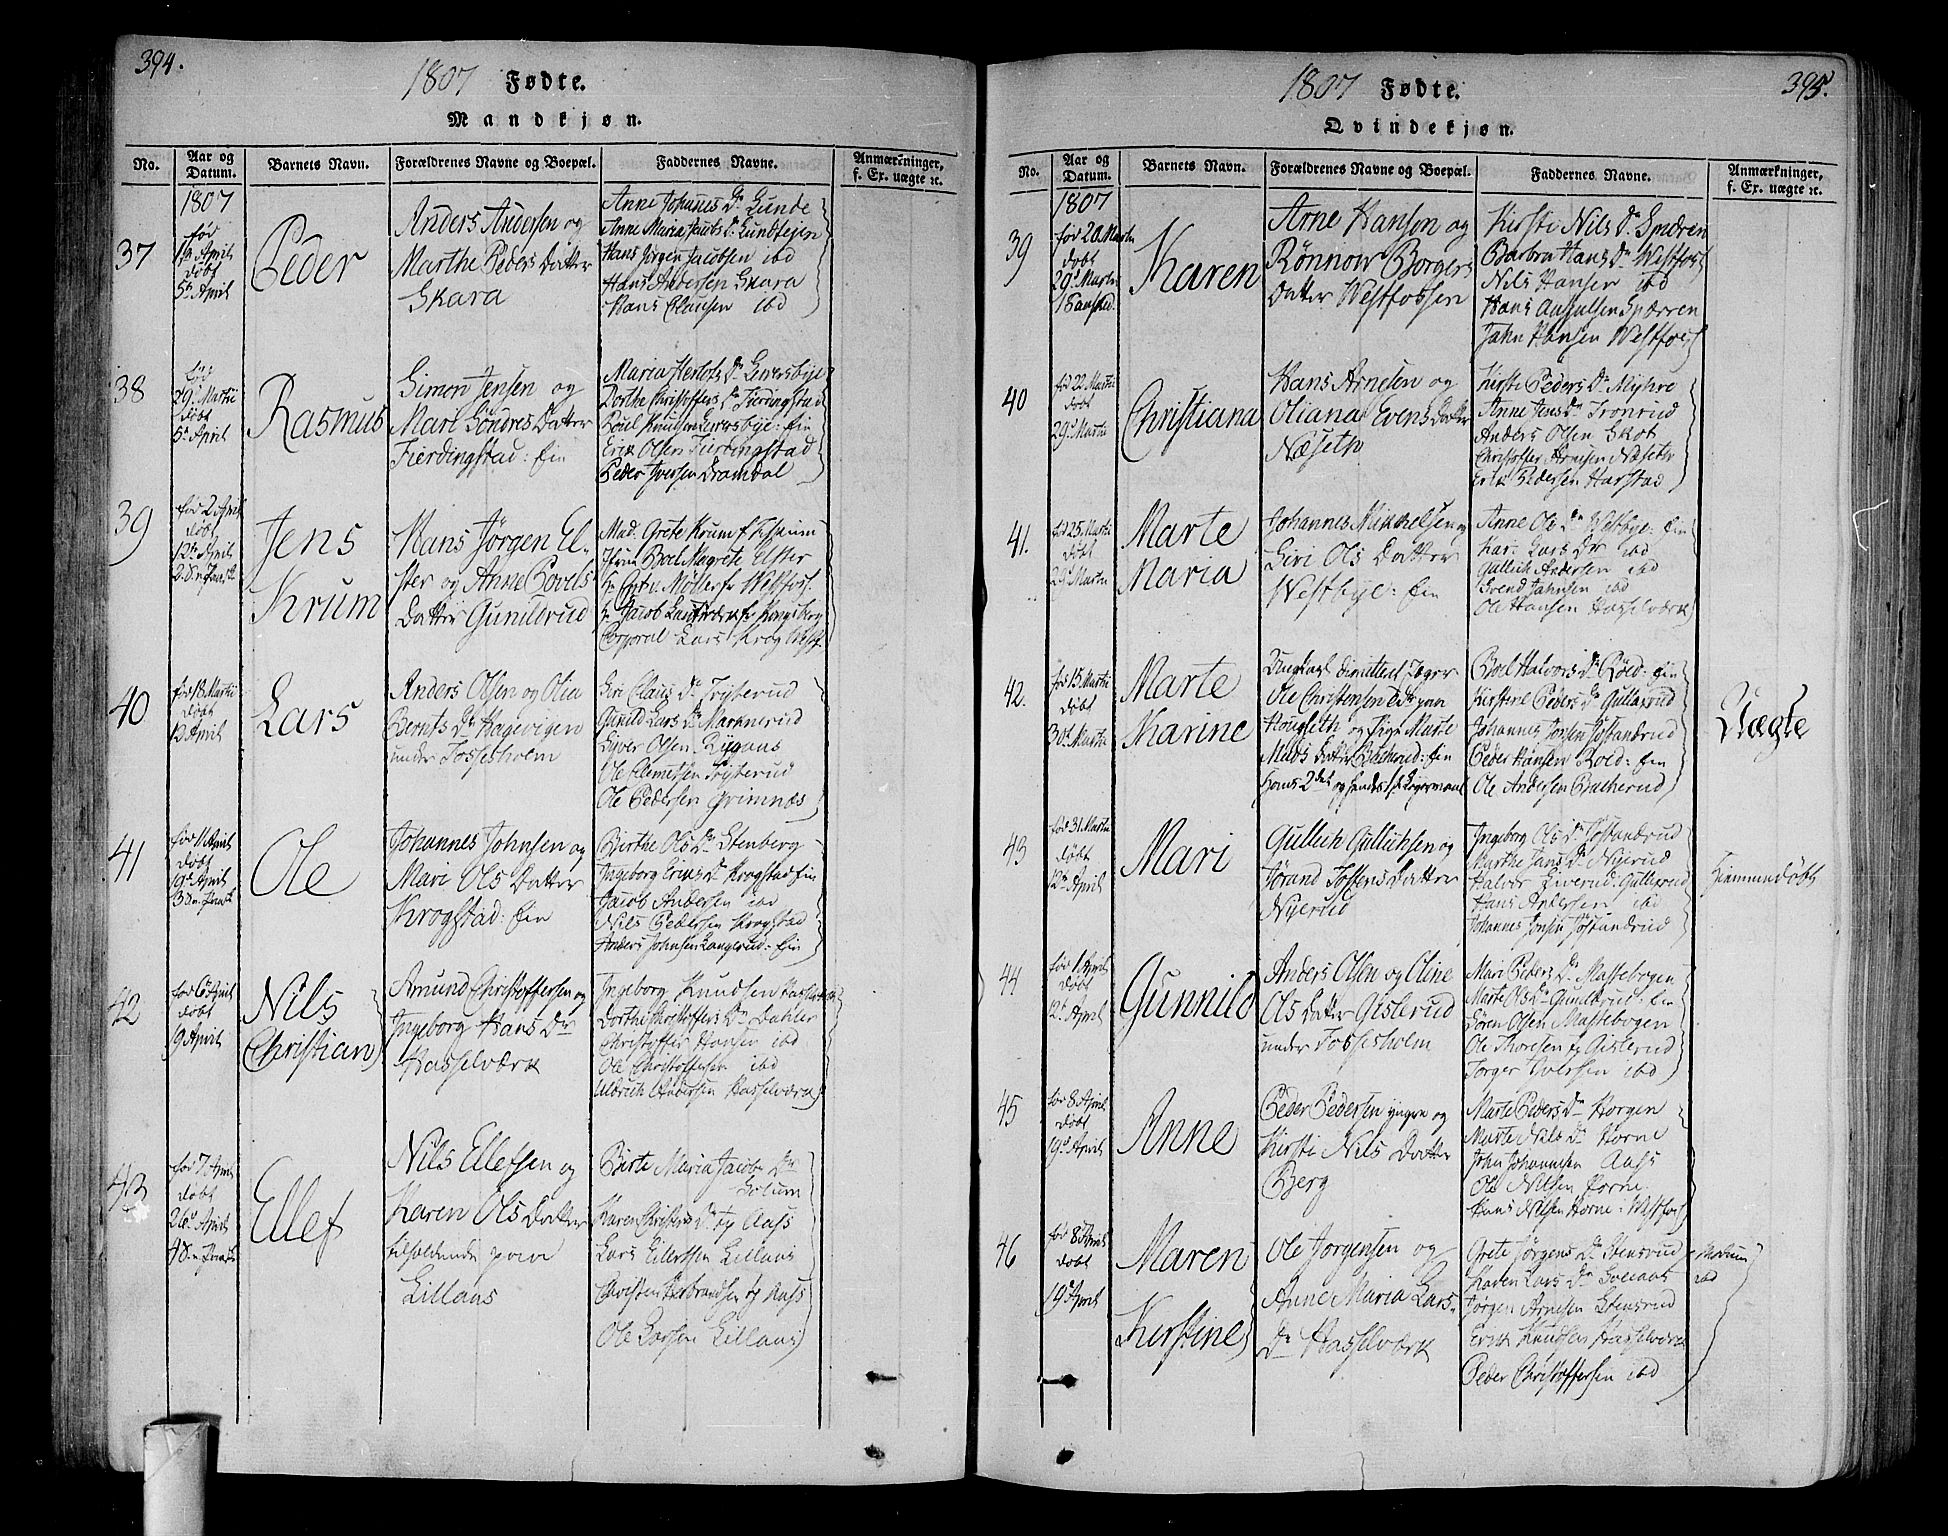 394.
1807 Fødte.
Mandkjøn.
No.
Aar og Datum.
Barnets Navn.
Forældrenes Navne og Boepæl.
Faddernes Navne.
Anmærkninger, f. Ex. uægte ꝛc.
1807
37
fød
April
døbt
5t April
Peder
Anders Andersen og
Marthe Peders Datter
Skara
Anne Johannes Dr Lunde
Anne Maria Dr
Hans Jørgen Jacobsen ibd
Hans Andersen Skara
Hans Clausen ibd
38
fød
29 Martii
døbt
5t April
Rasmus
Simon Jensen og
Mari Sondres Datter
Fierdingstad: Ein
Maria Dr
Dorthe Christoffers Dr Fierdingstad
Poul Knudsen : Ein
Erik Olsen Fierdingstad
Peder Iversen Dramdal
39
fød 2 April
døbt
12t April
Jens
Krum
Hans Jørgen El-
ster og Anne Bovels
Datter Gunilerud
Mad. Grete Krum
Boel Magrete Elster
Møller Westfos.
Jacob Kongsberg
Corporal Lars Krog
40
fød 18 Martii
døbt
12 April
Lars
Anders Olsen og Olia
Bernts Dr Hagevigen
under Fossesholm
Siri Claus Dr Tryterud
Gunild Lars Dr
Olsen
Ole Clemetsen Tryterud
Ole Pedersen Grimnæs
41
fød 1 April
døbt
19 April
Ole
Johannes Johnsen og
Mari Ols Datter
Krogstad: Ein
Birthe Ols Dr Stenberg
Ingeborg Eriks Dr Krogstad Ein
Jacob Andersen ibd
Nils Pedersen Krogstad
Anders Johnsen Langerud: Ein
42
fød 6 April
døbt
19 April
Nils
Christian
Amund Christoffersen og
Ingeborg Hans Dr
Hasselværk
Ingeborg Knudsen
Dorthe Christoffers Dr Dahler
Christoffer Hansen ibd
Ole Christoffersen ibd
Ulbrich Andersen Hasselværk
43
fød 7 April
døbt
26 April
Ellef
Nils Ellefsen og
Karen Ols Datter
tilholdende paa
Lillaas
Birte Maria Jacobs Dr
Solum
Karen Christens Dr Aass
Lars Eilertsen Lillaas
Christen Aass
Ole Larsen Lillaas
395.
1807 Fødte.
Qvindekjøn.
No.
Aar og Datum.
Barnets Navn.
Forældrenes Navne og Boepæl.
Faddernes Navne.
Anmærkninger, f. Ex. uægte ꝛc.
1807
39
fød 20 Martii
døbt
29 Martii
Karen
Arne Hansen og
Rønnow Borgers
Datter Westfossen
Kirsti Nils Dr Spæren
Barbra Hans Dr Westfos
Nils Hansen ibd
Hans Spærren
John Hansen Westfos
40
fød 22 Martii
døbt
29 Martii
Christiana
Hans Arnesen og
Oliana Evens Datter
Næseth
Kirsti Peders Dr Myhre
Anne Jens Dr Tronrud
Anders Olsen Skot
Christoffer Arnesen Næseth
Erik Pedersen Harstad
41.
fød 25 Martii
døbt
29 Martii
Marte
Maria
Johannes Mikkelsen og
Siri Ols Datter
Westbye: Ein
Anne Ols Dr Westbye: Ein
Kari Lars Dr ibd
Gullich Andersen ibd
Svend Jahnsen ibd
Ole Hansen Hasselværk
42.
fød 15 Martii
døbt
30 Martii
Marte
Karine
Ungkarl dimittert Jæger
Ole Christensen Eds paa
og Pige Marte
Mads Datter : Ein
hans 2det og hendes 1st Leiermaal
Boel Halvors Dr Røld: Ein
Kirstene Peders Dr Gullaxrud
Johannes Jonsen Jøstandrud
Peder Hansen Røld: Ein
Ole Andersen Bacherud
Uægte
43
fød 31 Martii
døbt
12 April
Mari
Gullich Gullichsen og
Jørand Tostens Datter
Nyerud
Ingeborg Ols Dr Jøstandrud
Marthe Jans Dr Nyerud
Halvor Gullaxrud
Hans Andersen ibd
Johannes Jonsen Jøstandrud
Hjemmedøbt
44
fød 1 April
døbt
12 April
Gunnild
Anders Olsen og Oline
Ols Datter Gislerud
under Fossesholm
Mari Peders Dr Massebogen
Marte Ols Dr : Ein
Søren Olsen Massebogen
Ole Thoresen Gislerud
Torger Iversen ibd
45
fød 8 April
døbt
19 April
Anne
Peder Pedersen yngre og
Kirsti Nils Datter
Berg
Marte Peders Dr Horgen
Marte Nils Dr Horne
John Johannesen Aass
Ole Nilsen Horne
Hans Nilsen Horne: Westfos
46
fød 8 April
døbt
19 April
Maren
Kirstine
Ole Jørgensen og
Anne Maria Lars-
Dr Hasselværk
Grete Jørgens Dr Stensrud
Karen Lars Dr
Jørgen Arnesen Stensrud
Erik Knudsen Hasselværk
Peder Christoffersen ibd
Modum
ibd